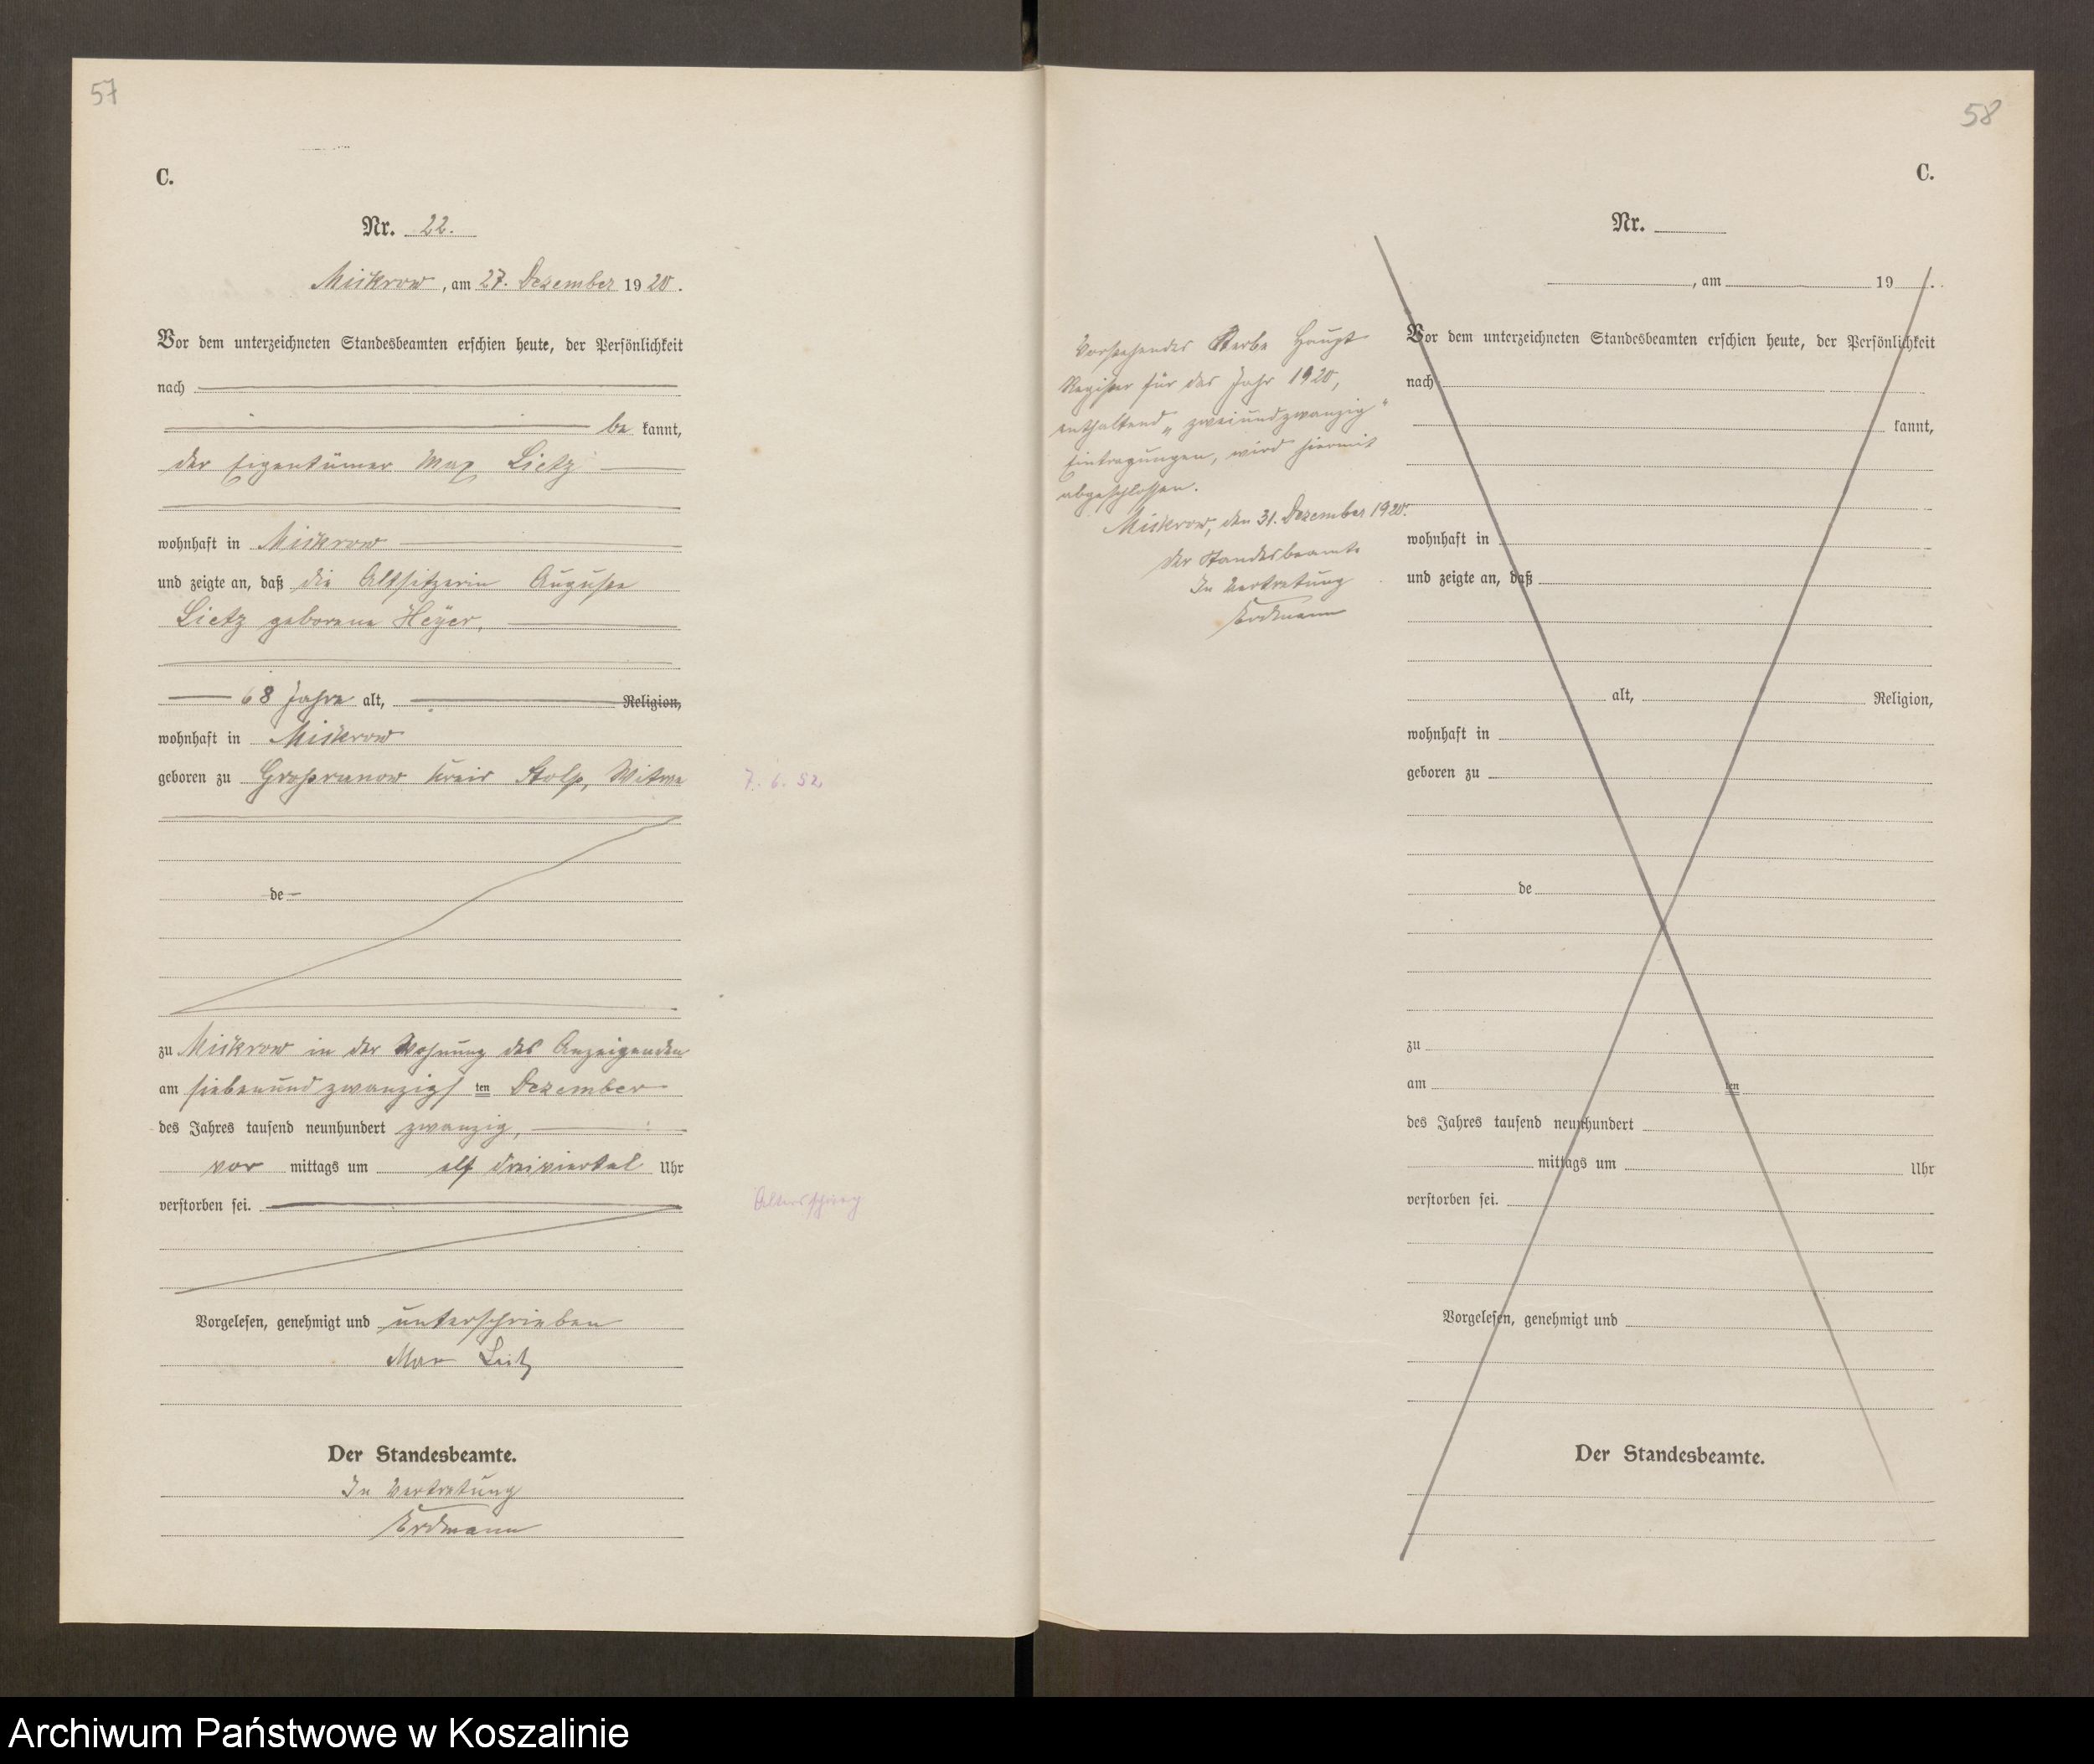 57
C.
Nr. 22.
Mickrow, am 27. Dezember 1920.
Vor dem unterzeichneten Standesbeamten erschien heute, der Persönlichkeit
nach
be kannt,
der Eigentümer Max Lietz
wohnhaft in Mickrow
und zeigte an, daß die Altsitzerin Auguste
Lietz geborene Heyer,
68 Jahre alt, Religion,
wohnhaft in Mickrow
geboren zu Großrunow Kreis Stolp, Witwe
7. 6. 52
de
zu Mickrow in der Wohnung des Anzeigenden
am siebenundzwanzigs ten Dezember
des Jahres tausend neunhundert zwanzig,
vor mittags um elf dreiviertel Uhr
verstorben sei.
Vorgelesen, genehmigt und unterschrieben
Max Lietz
Der Standesbeamte.
In Vertretung
Erdmann
58
C.
Nr.
, am 19 .
Vorstehendes Sterbe Haupt
Register für das Jahr 1920,
enthaltend „zweiundzwanzig“
Eintragungen, wird hiermit
abgeschlossen.
Mickrow, den 31. Dezember 1920.
Der Standesbeamte
In Vertretung
Erdmann
Vor dem unterzeichneten Standesbeamten erschien heute, der Persönlichkeit
nach
kannt,
wohnhaft in
und zeigte an, daß
alt, Religion,
wohnhaft in
geboren zu
de
zu
am ten
des Jahres tausend neunhundert
mittags um Uhr
verstorben sei.
Vorgelesen, genehmigt und
Der Standesbeamte.
Archiwum Państwowe w Koszalinie